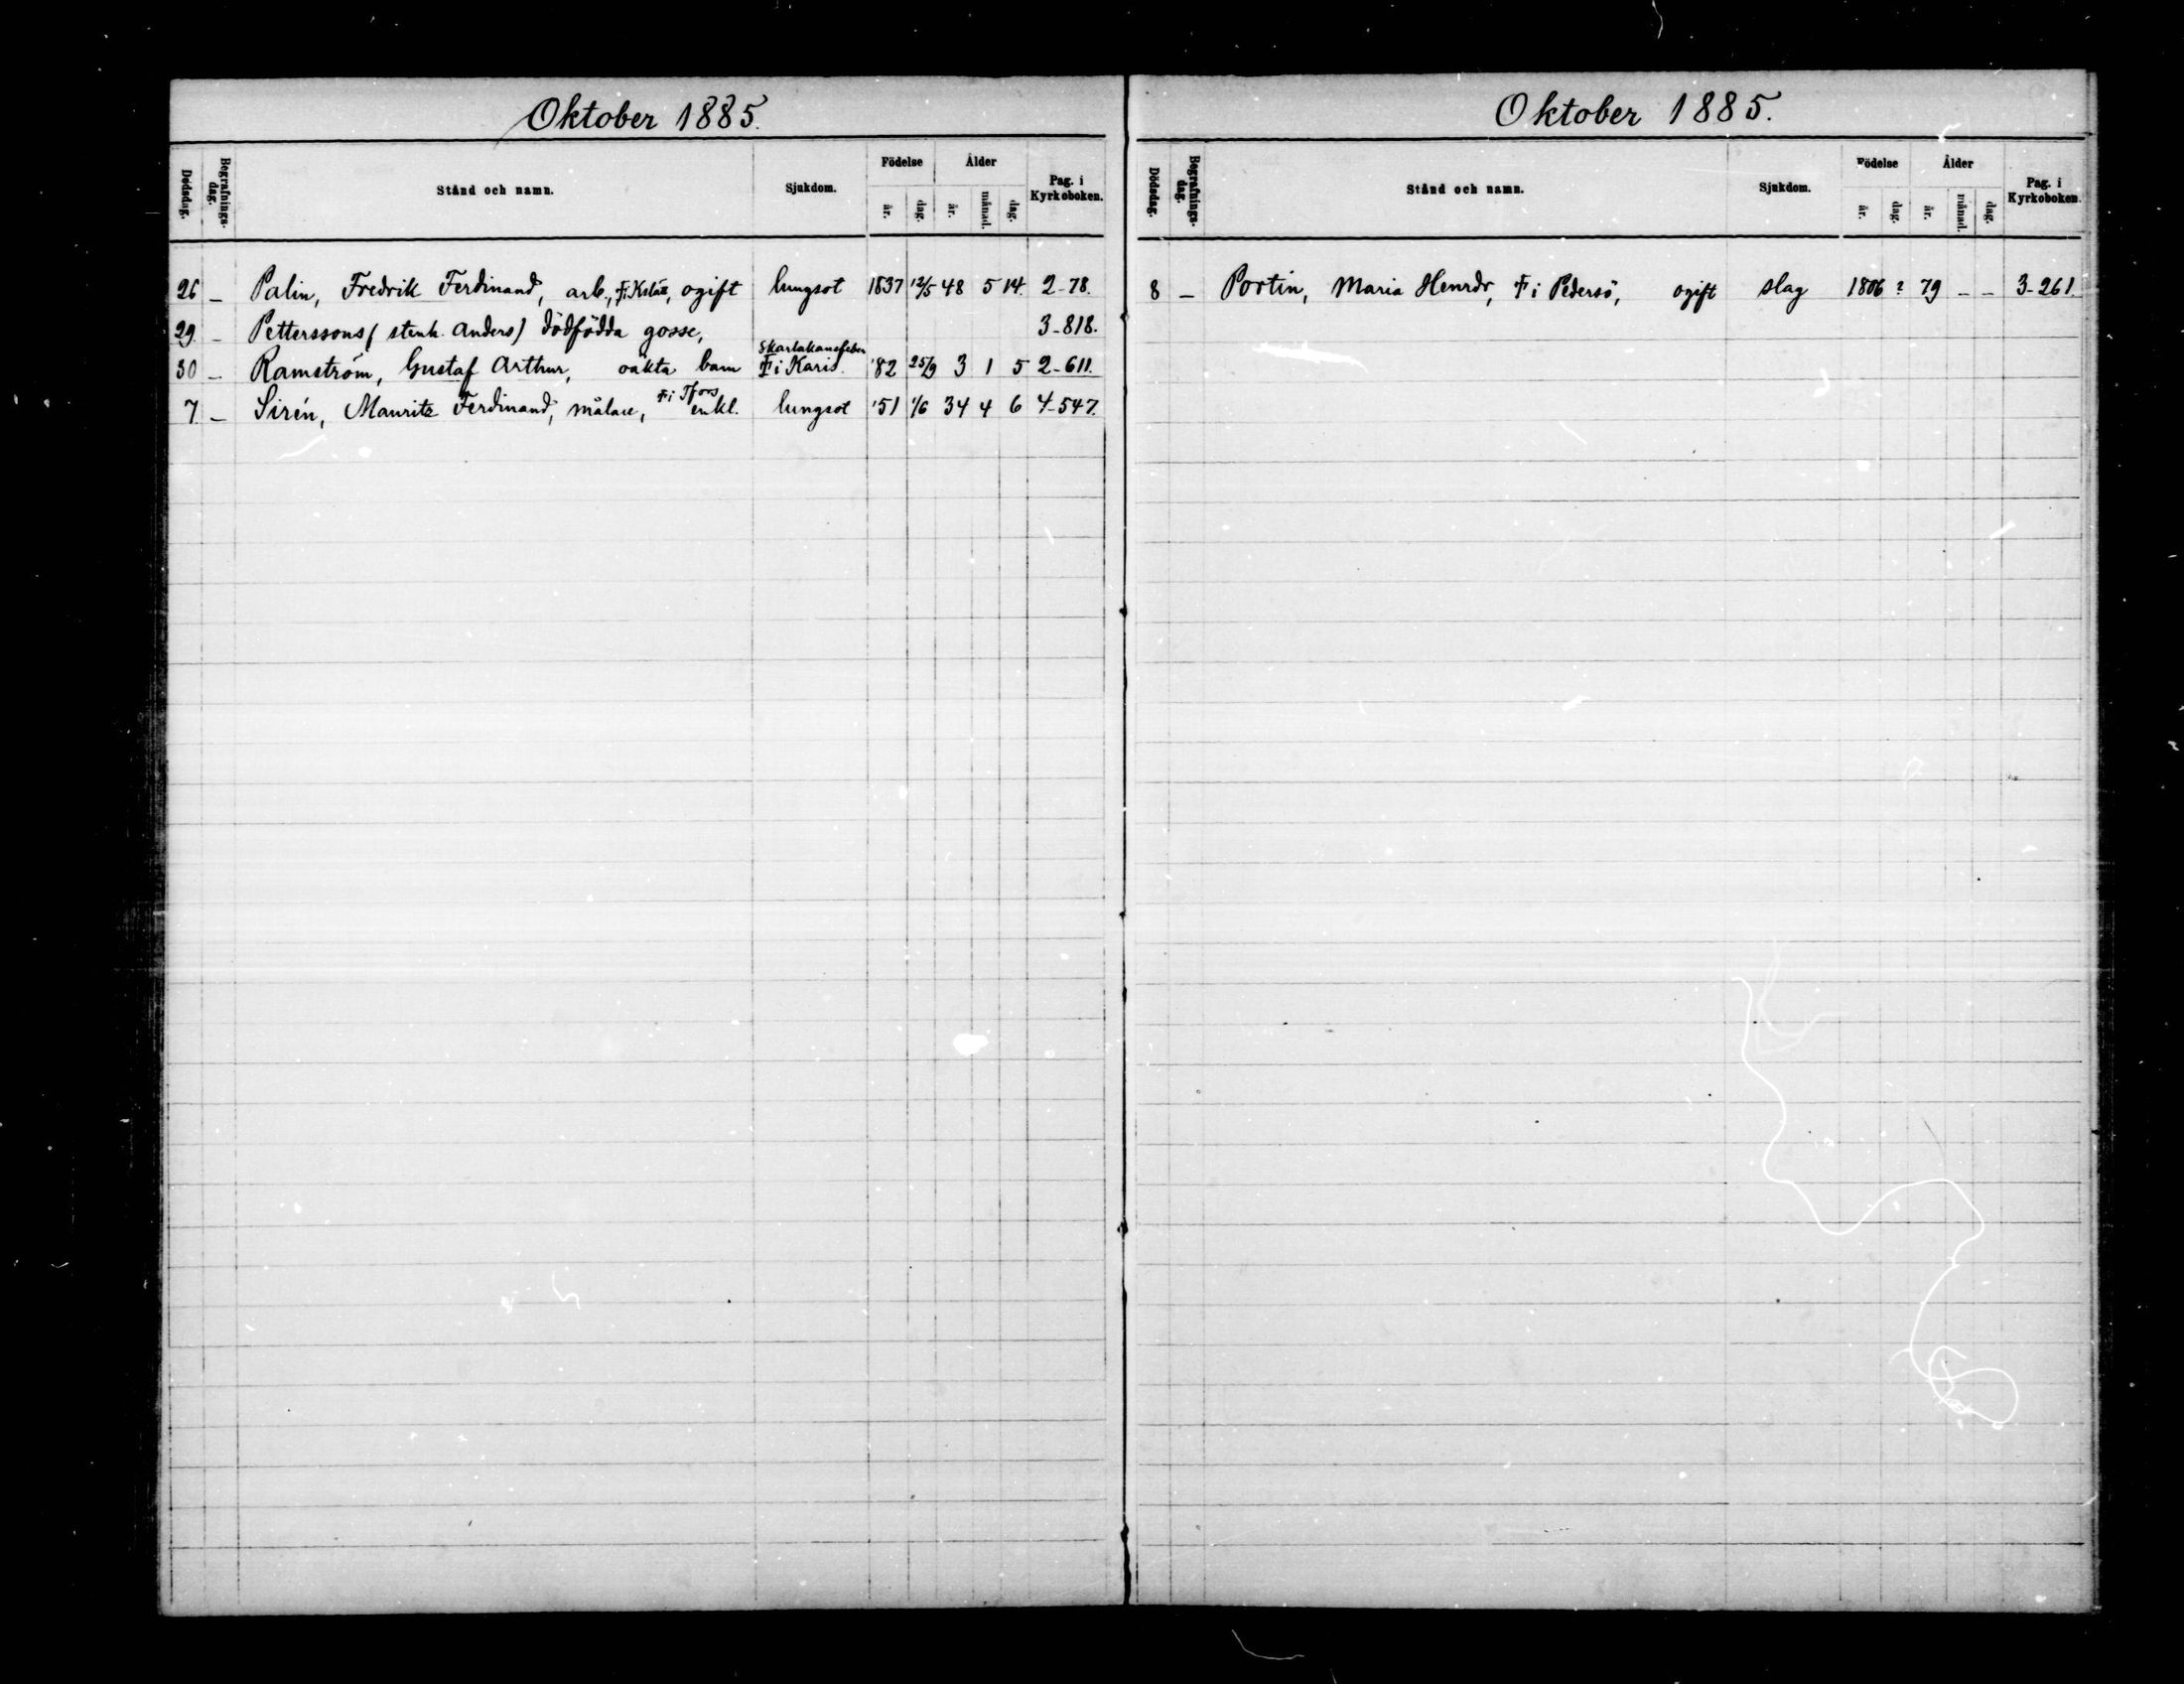 Oktober 1885.
Dödsdag. Begrafnings-dag. Stånd och namn. Sjukdom. Födelse år. dag. Ålder år. månad. dag. Pag. i Kyrkoboken.
26 – Palin, Fredrik Ferdinand, arb., F. i Kslätt, ogift lungsot 1837 12/5 48 5 14. 2-78.
29. – Petterssons (stenh. Anders) dödfödda gosse, 3-818.
Skarlakansfeber
30 – Ramström, Gustaf Arthur, oäkta barn F i Karis. '82 25/9 3 1 5 2-611.
7. – Sirén, Mauritz Ferdinand, målare, F i Tfors enkl. lungsot '51 1/6 34 4 6 4-547.
Oktober 1885.
Dödsdag. Begrafnings-dag. Stånd och namn. Sjukdom. Födelse år. dag. Ålder år. månad. dag. Pag. i Kyrkoboken.
8 – Portin, Maria Henrdr, F i Pedersö, ogift slag 1806 ? 79 – – 3-261.